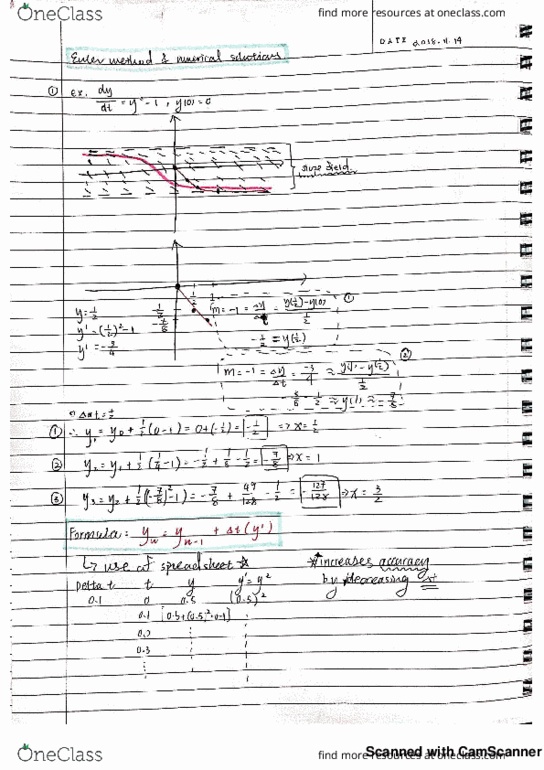 OneClass
find more resources at oneclass.com
DATE 2018.4.19
Euler method & numerical solutions
① ex. dy/dt = y² - 1 , y(0) = 0
slope field
y = 1/2
y' = (1/2)² - 1
y' = -3/4
m = -1 = Δy/Δt = (y(1/2) - y(0))/(1/2) ①
-1/2 = y(1/2)
m = -1 = Δy/Δt = -3/4 ≈ (y(1) - y(1/2))/(1/2) ②
-3/8 - 1/2 ≈ y(1) ≈ -7/8
Δt = 1/2
① ∴ y₁ = y₀ + 1/2(0-1) = 0 + (-1/2) = -1/2 ⇒ x = 1/2
② y₂ = y₁ + 1/2(1/4 - 1) = -1/2 + 1/8 - 1/2 = -7/8 ⇒ x = 1
③ y₃ = y₂ + 1/2((-7/8)² - 1) = -7/8 + 49/128 - 1/2 = -127/128 ⇒ x = 3/2
Formula: yₙ = yₙ₋₁ + Δt(y')
↳ use of spreadsheet ☆
* increases accuracy
by decreasing Δt
Delta t t y y' = y²
0.1 0 0.5 (0.5)²
0.1 [0.5+(0.5)²·0.1]
0.2
0.3
OneClass
find more resources at oneclass.com
Scanned with CamScanner